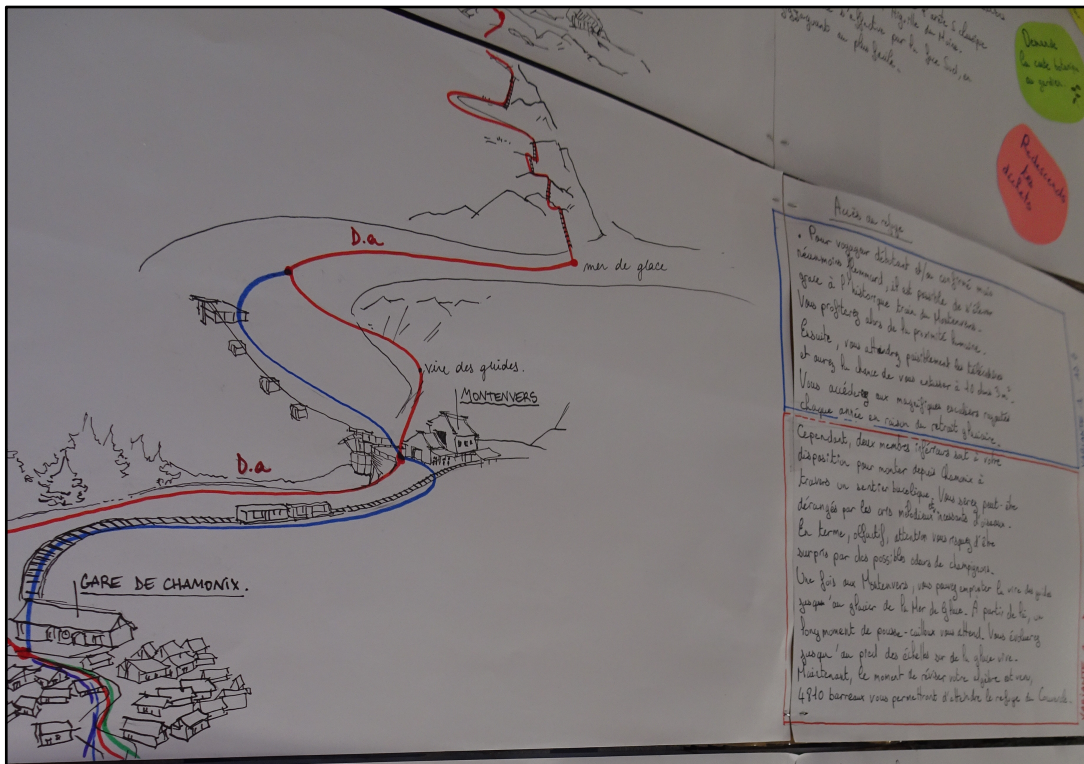 D.a
mer de glace
vire des guides.
MONTENVERS
D.a
GARE DE CHAMONIX.
par la face Sud, en
au plus facile.
Demande
la carte
au gardien.
Redescends
Accès au refuge
. Pour voyageur débutant et/ou confirmé mais
néanmoins flemmard, il est possible de s'élever
grace à l'historique train du Montenvers.
Vous profiterez alors de la proximité humaine.
Ensuite, vous attendrez paisiblement les télécabines
et aurez la chance de vous entasser à 10 dans 3m²
Vous accéderez aux magnifiques escaliers rajoutés
chaque année en raison du retrait glaciaire.
Cependant, deux membres inférieurs sont à votre
disposition pour monter depuis Chamonix à
travers un sentier bucolique. Vous serez peut-être
dérangés par les cris mélodieux incessants d'oiseaux.
En terme, olfactif, attention vous risquez d'être
surpris par des possibles odeurs de champignons.
Une fois aux Montenvers, vous pouvez emprunter la vire des guides
jusqu'au glacier de la Mer de Glace. A partir de là, un
long moment de pousse-cailloux vous attend. Vous évoluerez
jusqu'au pied des échelles sur de la glace vive.
Maintenant, le moment de réviser votre algèbre est venu,
4810 barreaux vous permettront d'atteindre le refuge du Couvercle.